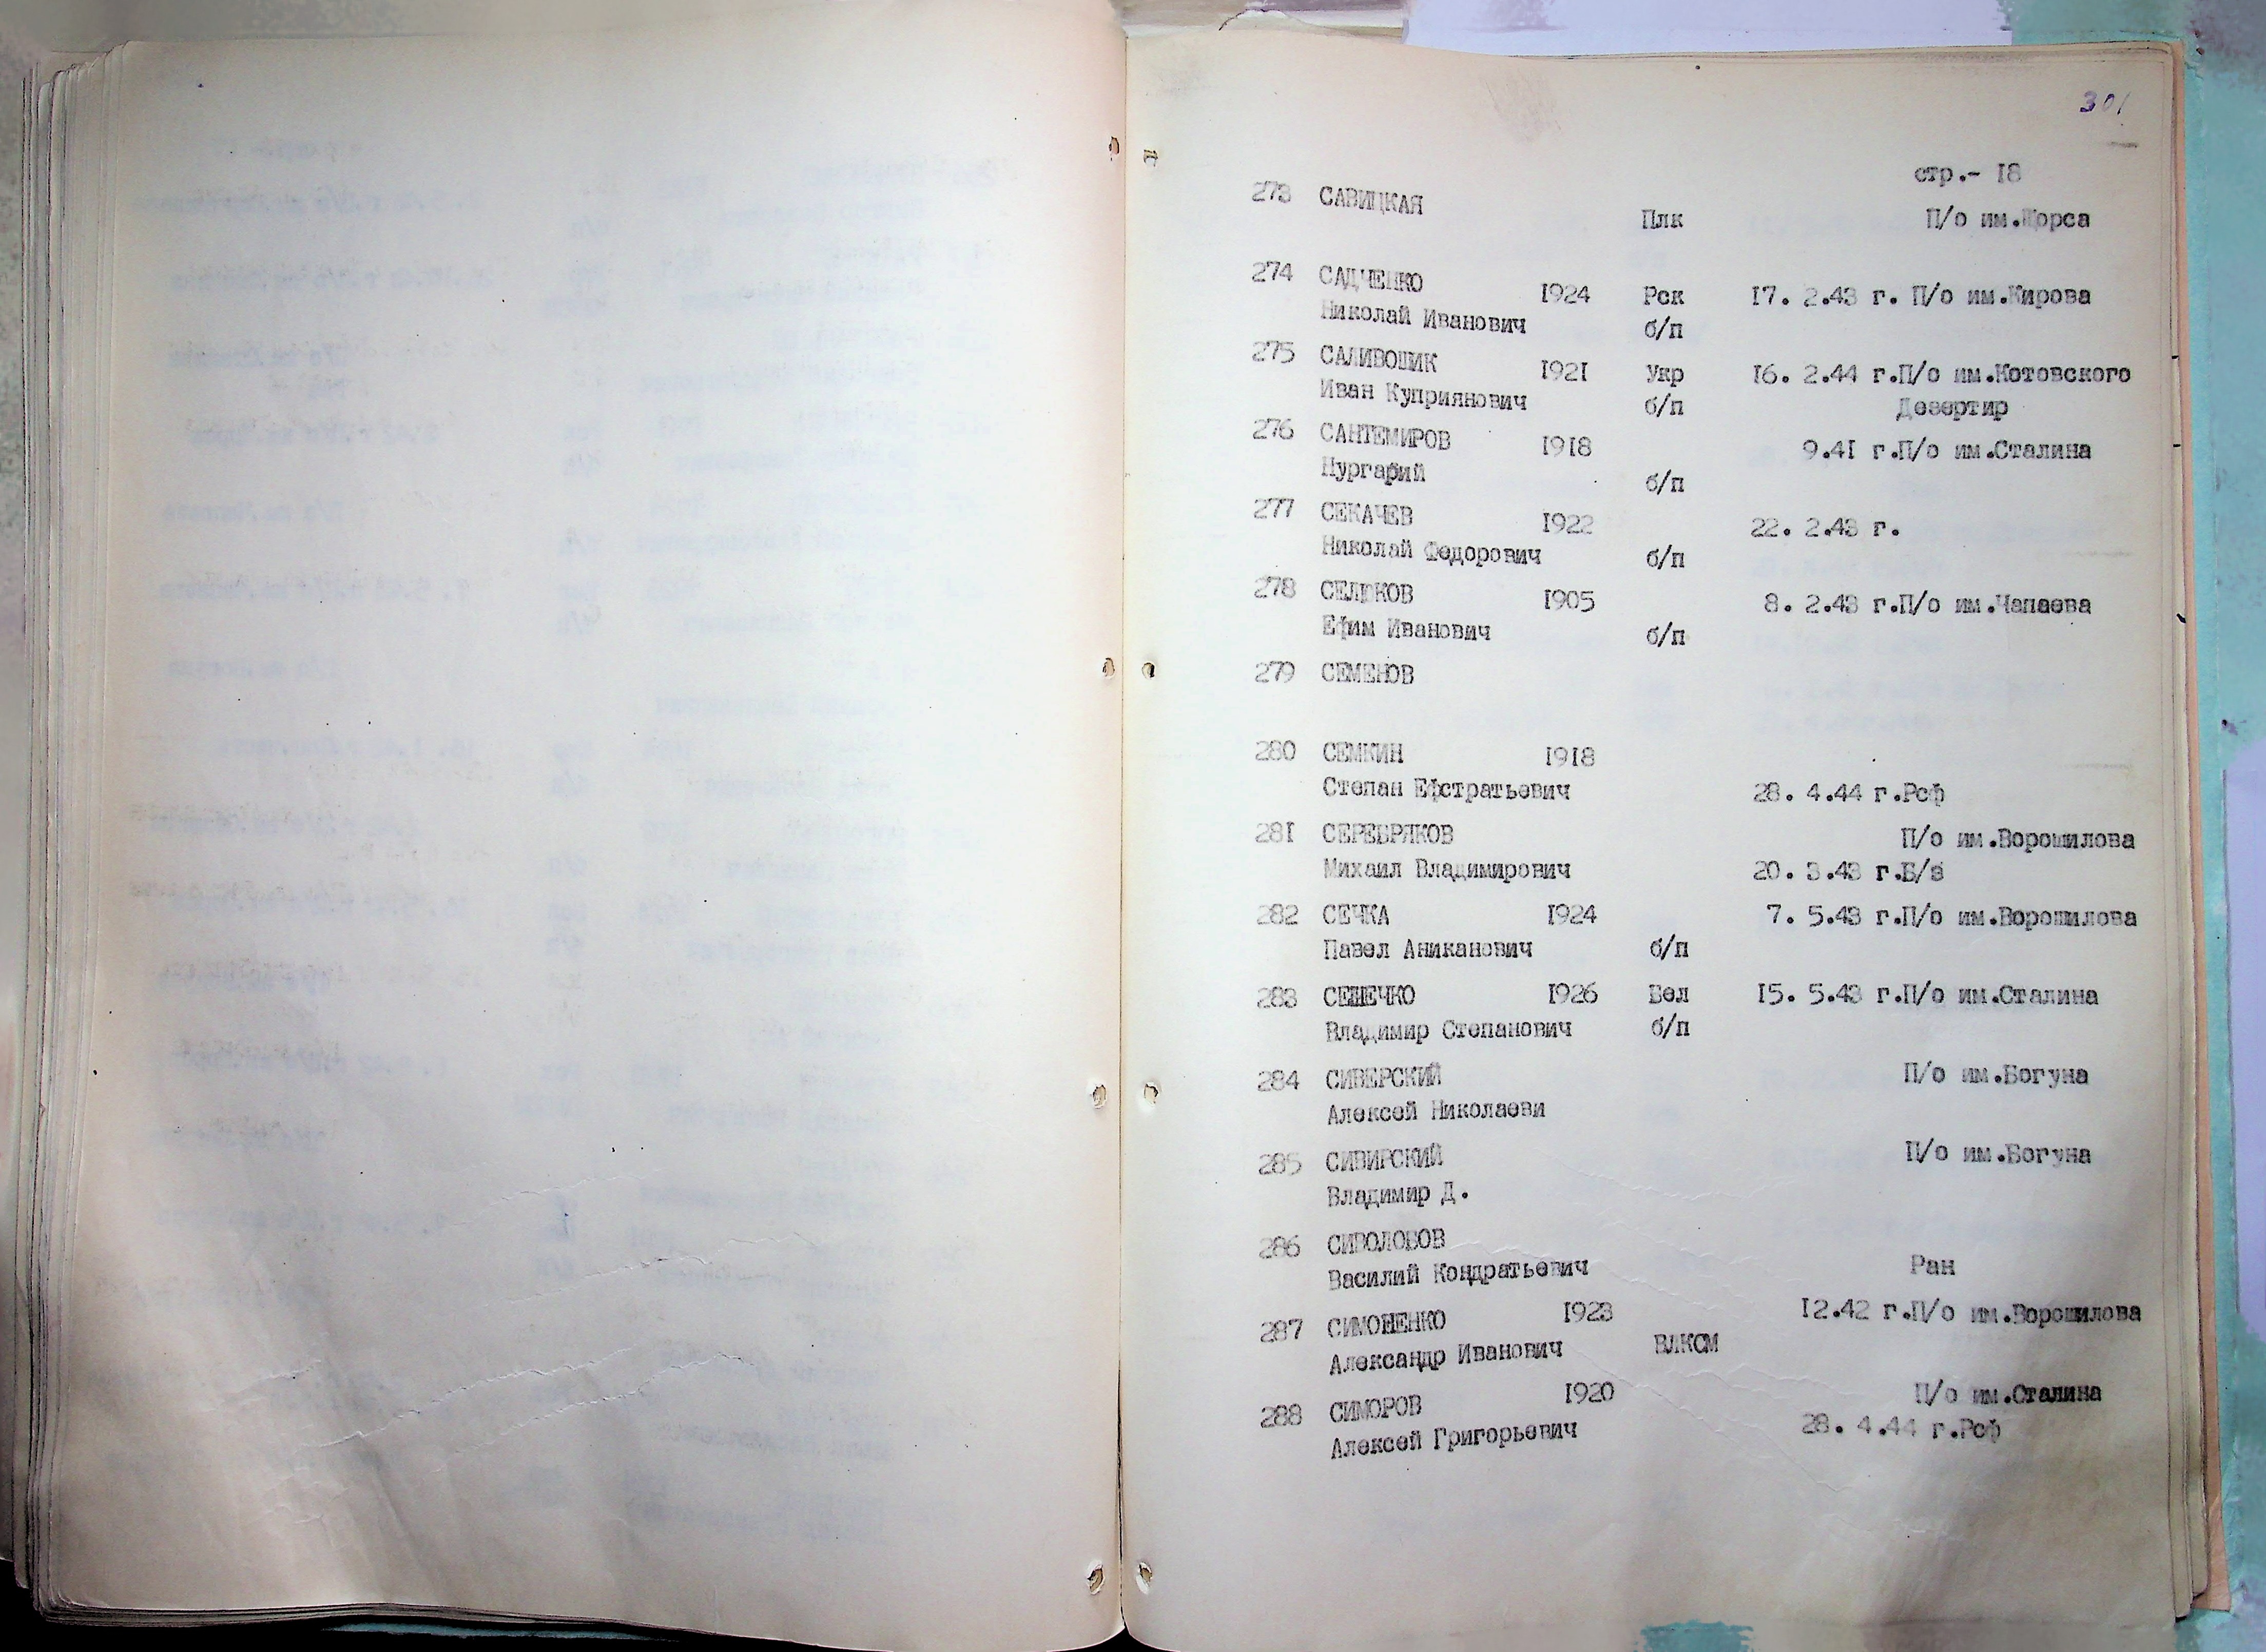 301
стр.- 18
273 САВИЦКАЯ Плк П/о им.Щорса
274 САДЧЕНКО 1924 Рск 17. 2.43 г. П/о им.Кирова
Николай Иванович б/п
275 САЛИВОШИК 1921 Укр 16. 2.44 г.П/о им.Котовского
Иван Куприянович б/п Дезертир
276 САНТЕМИРОВ 1918 9.41 г.П/о им.Сталина
Нургарий б/п
277 СЕКАЧЕВ 1922 22. 2.43 г.
Николай Федорович б/п
278 СЕЛЮКОВ 1905 8. 2.43 г.П/о им.Чапаева
Ефим Иванович б/п
279 СЕМЕНОВ
280 СЕМКИН 1918
Степан Ефстратьевич 28. 4.44 г.Рсф
281 СЕРЕБРЯКОВ П/о им.Ворошилова
Михаил Владимирович 20. 3.43 г.Б/з
282 СЕЧКА 1924 7. 5.43 г.П/о им.Ворошилова
Павел Аниканович б/п
283 СЕШЕЧКО 1926 Бел 15. 5.43 г.П/о им.Сталина
Владимир Степанович б/п
284 СИВЕРСКИЙ П/о им.Богуна
Алексей Николаеви
285 СИВИРСКИЙ П/о им.Богуна
Владимир Д.
286 СИВОЛОБОВ
Василий Кондратьевич Ран
287 СИМОНЕНКО 1923 12.42 г.П/о им.Ворошилова
Александр Иванович ВЛКСМ
288 СИМОРОВ 1920 П/о им.Сталина
Алексей Григорьевич 28. 4.44 г.Рсф